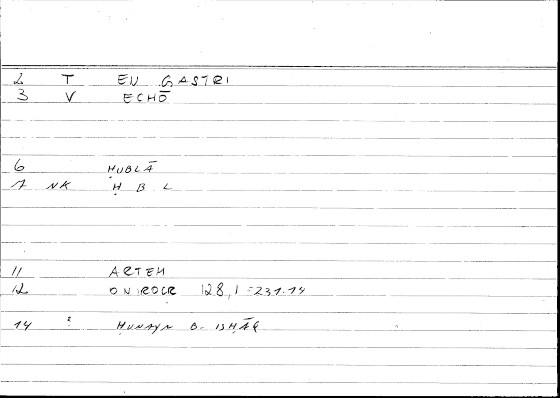 2 T EN GASTRI
3 V ECHŌ
6 ḤUBLĀ
7 NK Ḥ B L
11 ARTEM
12 ONIROCR 128,1 = 231.14
14 ? ḤUNAYN B. ISḤĀQ